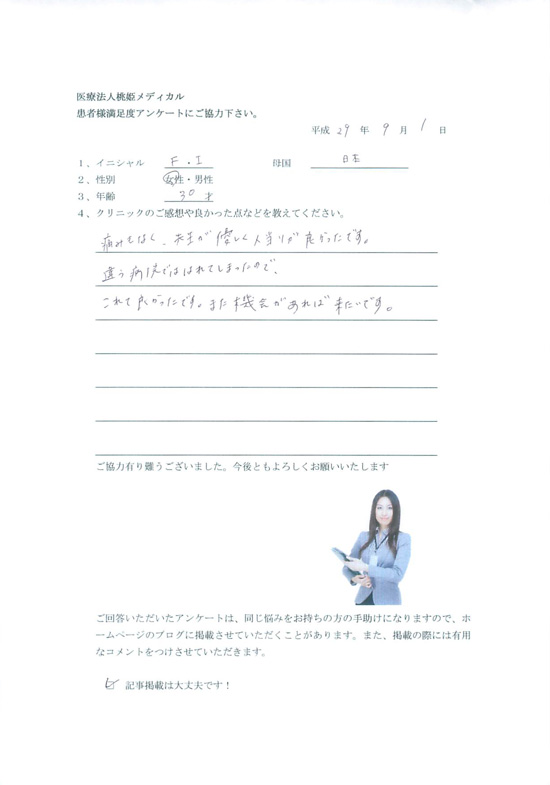 医療法人桃姫メディカル
患者様満足度アンケートにご協力下さい。
平成 29 年 9 月 1 日
1、イニシャル F . I 母国 日本
2、性別 女性・男性
3、年齢 30 才
4、クリニックのご感想や良かった点などを教えてください。
痛みもなく、先生が優しく人当りが良かったです。
違う病院でははれてしまったので、
これで良かったです。また機会があれば来たいです。
ご協力有り難うございました。今後ともよろしくお願いいたします
ご回答いただいたアンケートは、同じ悩みをお持ちの方の手助けになりますので、ホ
ームページのブログに掲載させていただくことがあります。また、掲載の際には有用
なコメントをつけさせていただきます。
記事掲載は大丈夫です！